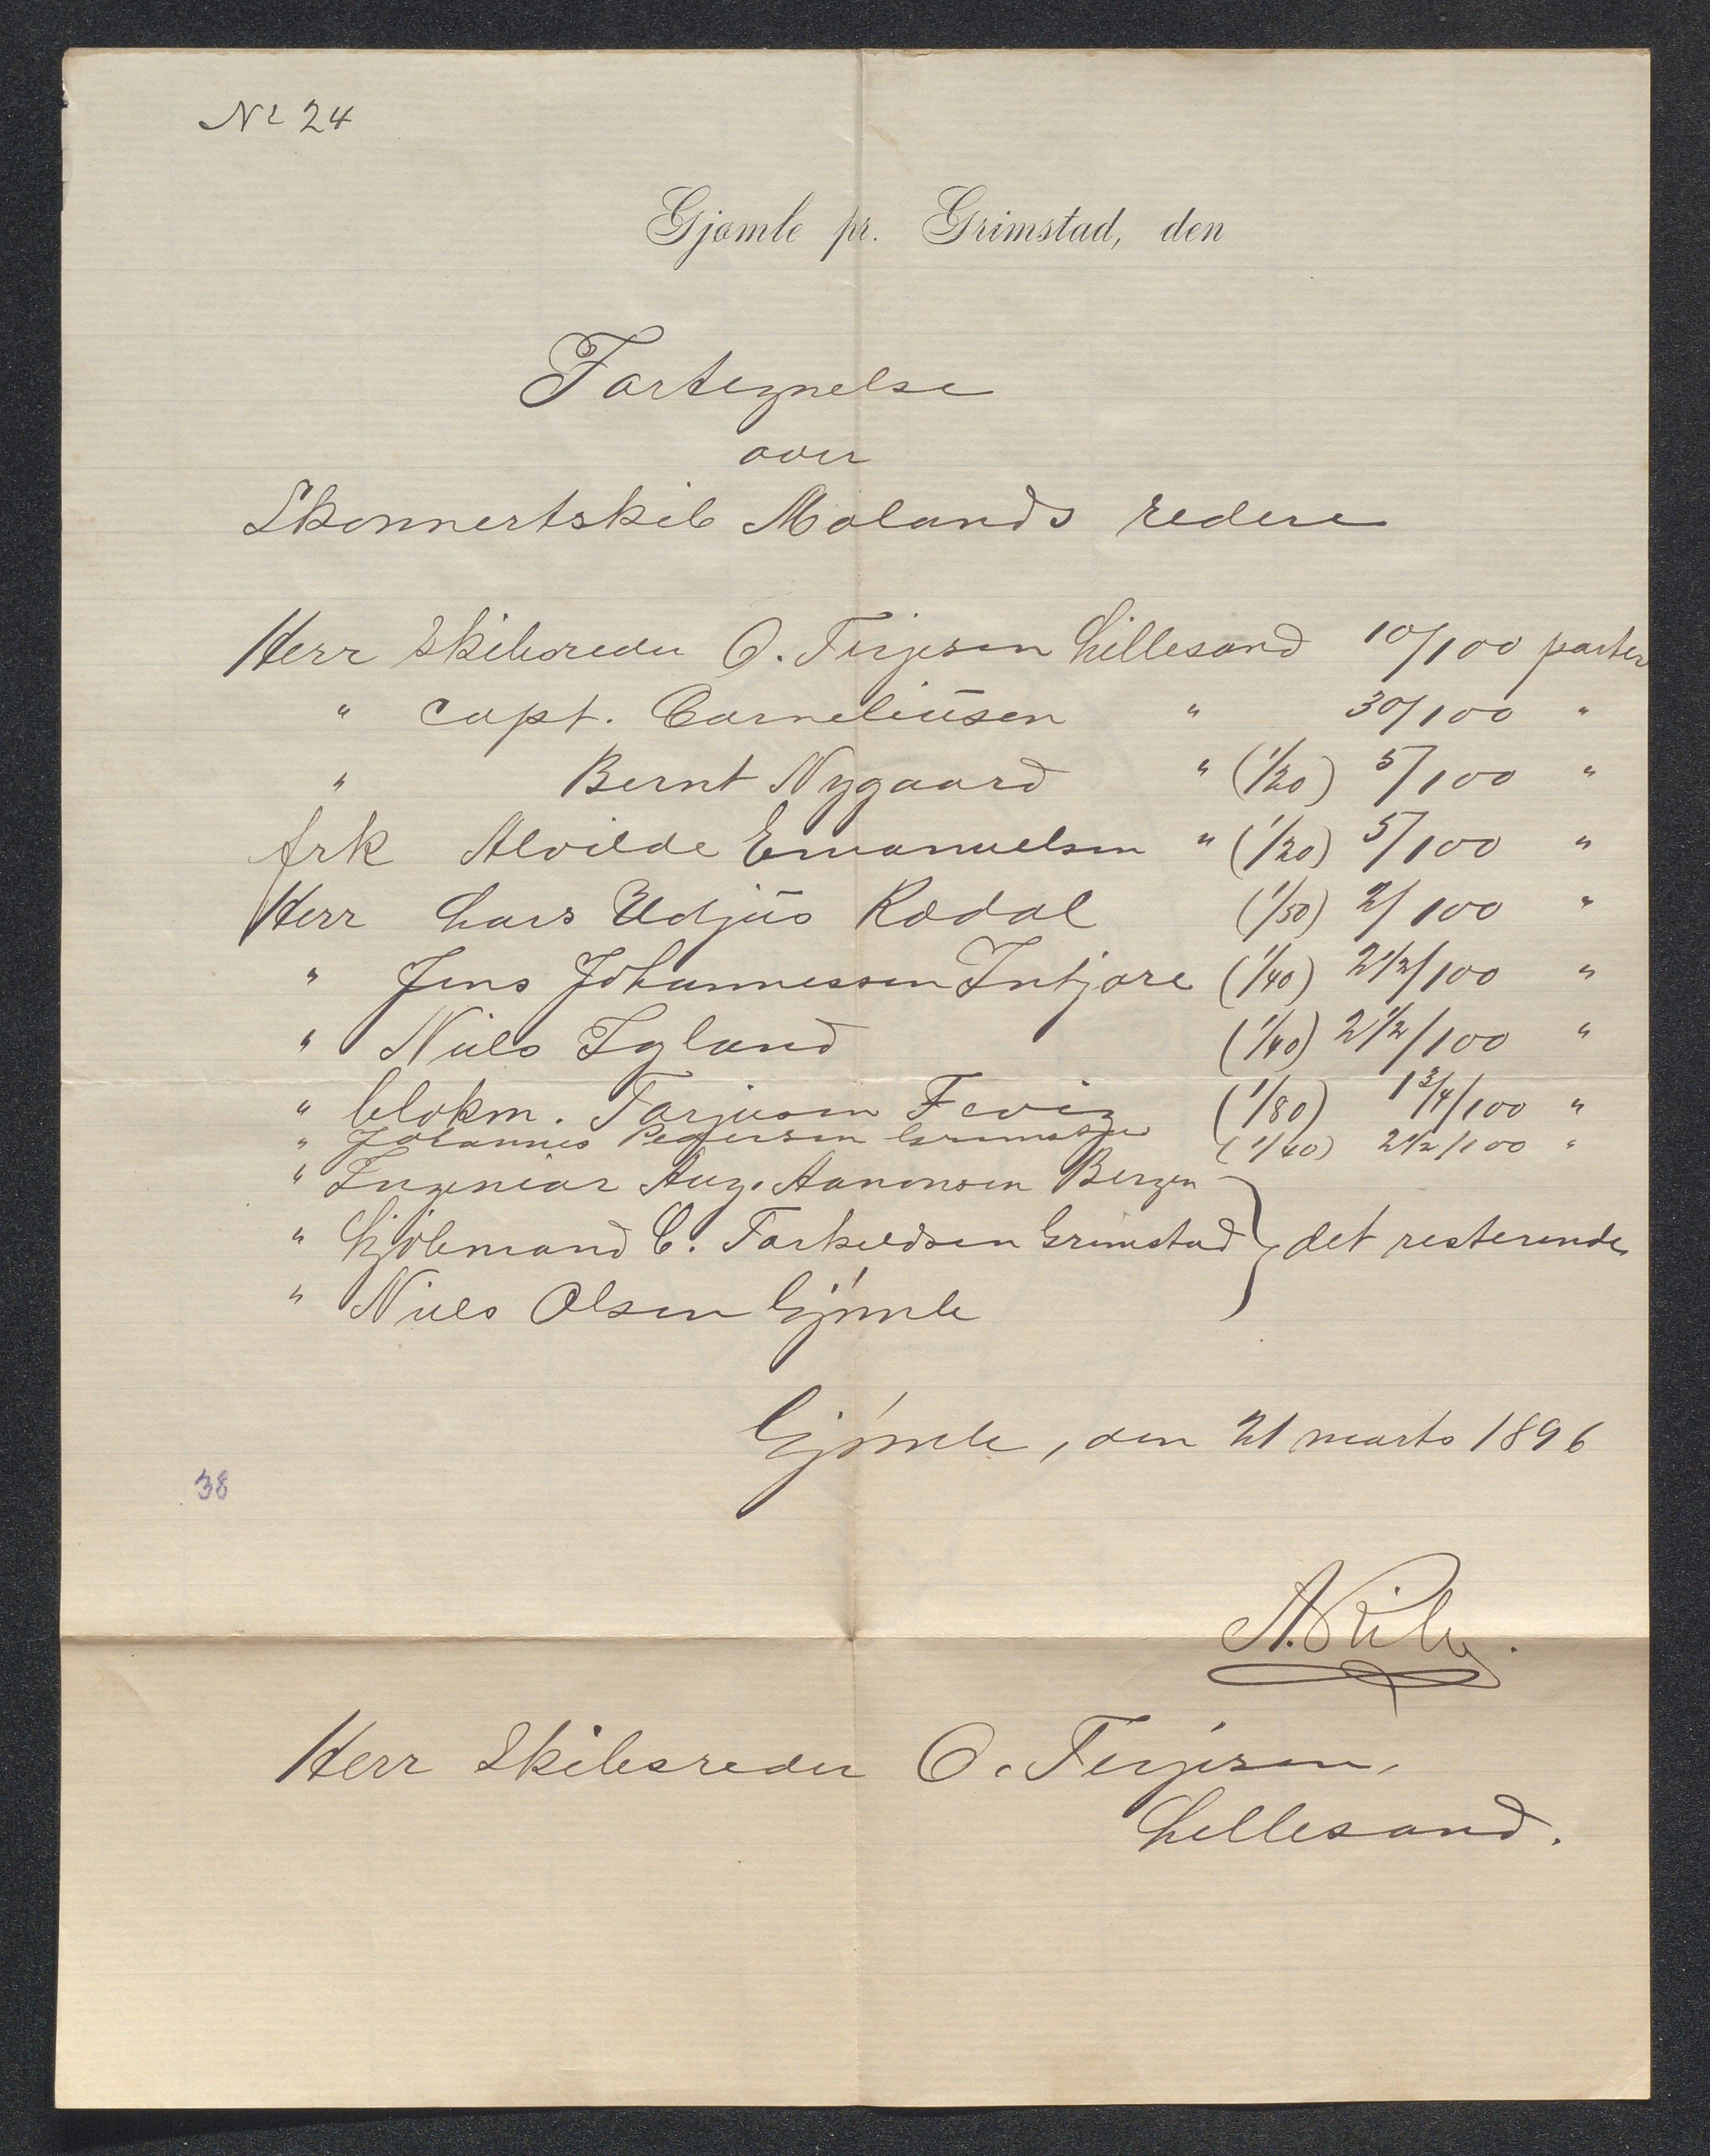 No 24
Gjømle pr. Grimstad, den
Fortegnelse
over
Skonnertskib Molands redere
Herr Skibsreder O. Terjesen Lillesand 10/100 parter
" Capt. Corneliusen " 30/100 "
" Bernt Nygaard " (1/20) 5/100 "
frk Alvilde Emanuelsen " (1/20) 5/100 "
Herr Lars Udjus Rodal (1/50) 2/100 "
" Jens Johannessen Intjore (1/40) 2 1/2/100 "
" Niels Igland (1/40) 2 1/2/100 "
" blokm. Torjusen Fevig (1/80) 1 3/4/100 "
" Johannes Pedersen (1/40) 2 1/2/100 "
" Ingeniør Aug. Aanonsen Bergen
" Kjøbmand C. Torkildsen Grimstad } det resterende
" Niels Olsen Gjømle
Gjømle, den 21 marts 1896
38
Herr Skibsreder O. Terjesen,
Lillesand.